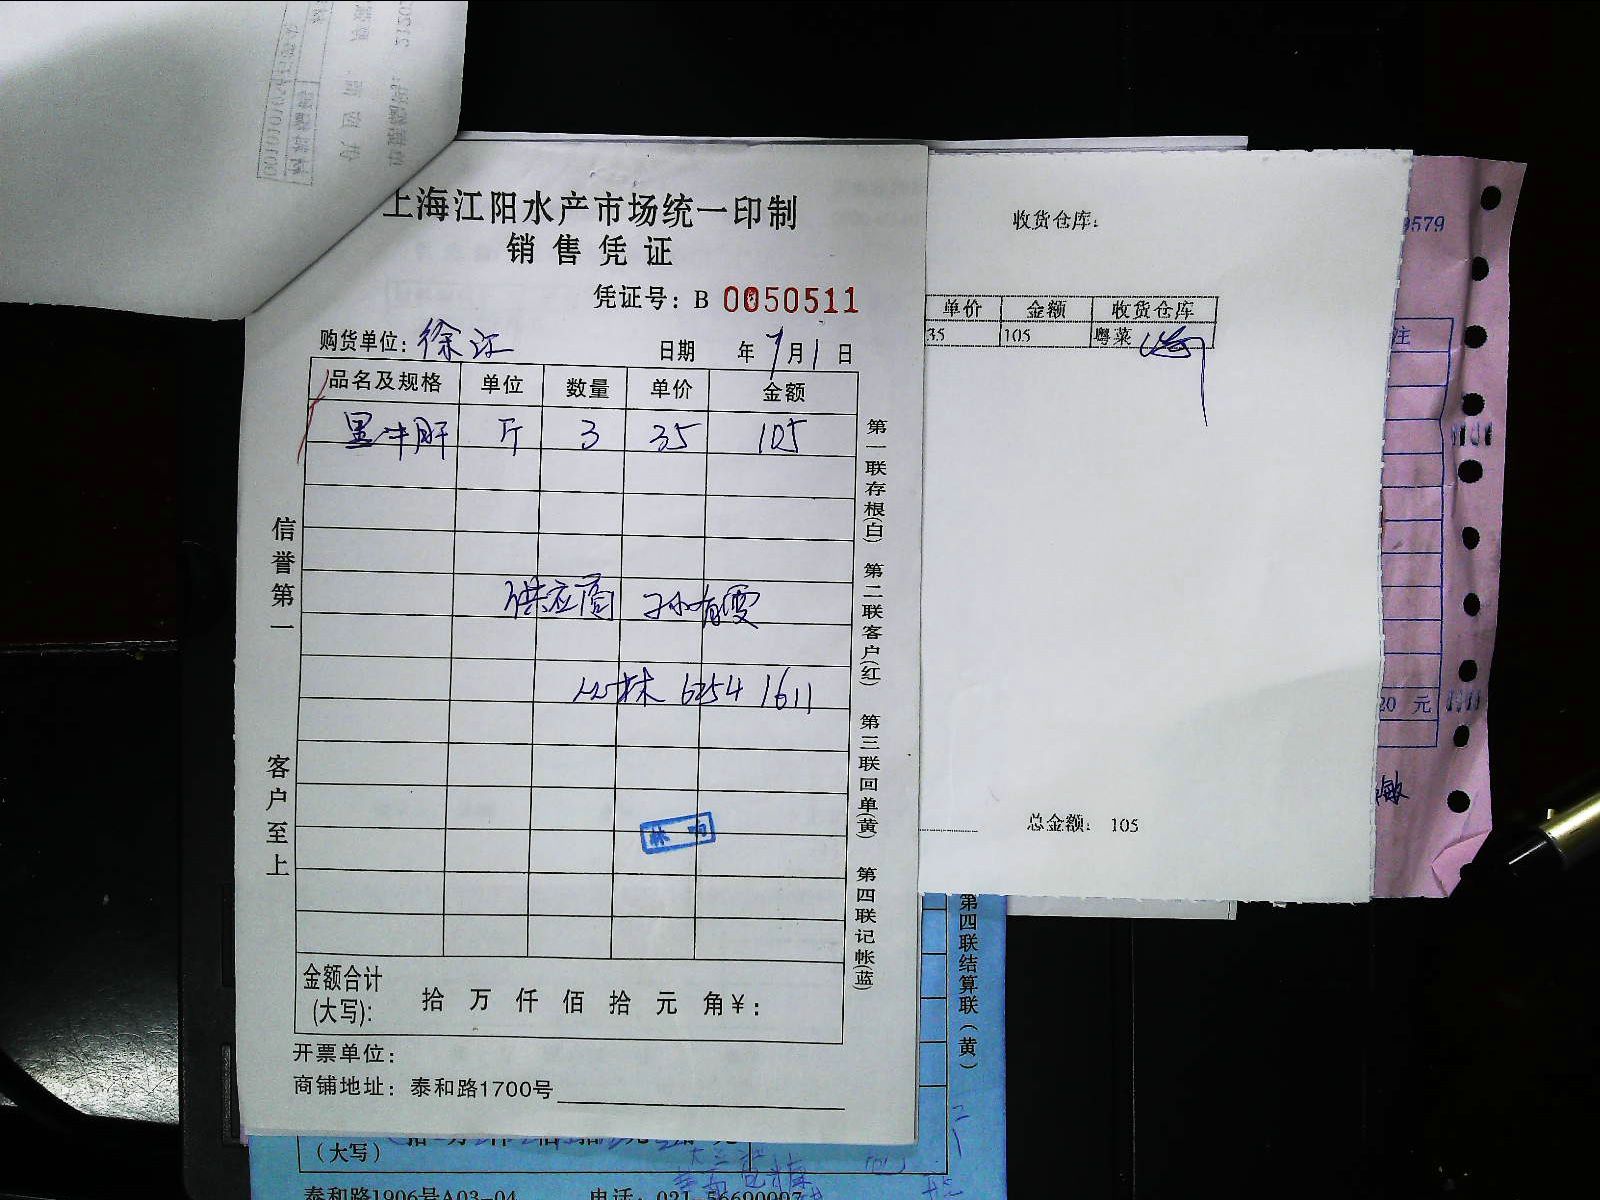 上海江阳水产市场统一印制
销售凭证
凭证号：B 0050511
购货单位：徐江
日期 年 7月1日
品名及规格 单位 数量 单价 金额
黑牛肝 斤 3 35 105
供应商 孙有雯
6254 1611
金额合计
(大写)： 拾 万 仟 佰 拾 元 角¥：
开票单位：
商铺地址：泰和路1700号
信誉第一
客户至上
第一联存根(白) 第二联客户(红) 第三联回单(黄) 第四联记帐(蓝)
收货仓库：
单价 金额 收货仓库
35 105 粤菜
总金额： 105
9579
注
20 元
敏
第四联结算联(黄)
(大写)
泰和路1906号A03-04 电话：021-56690097